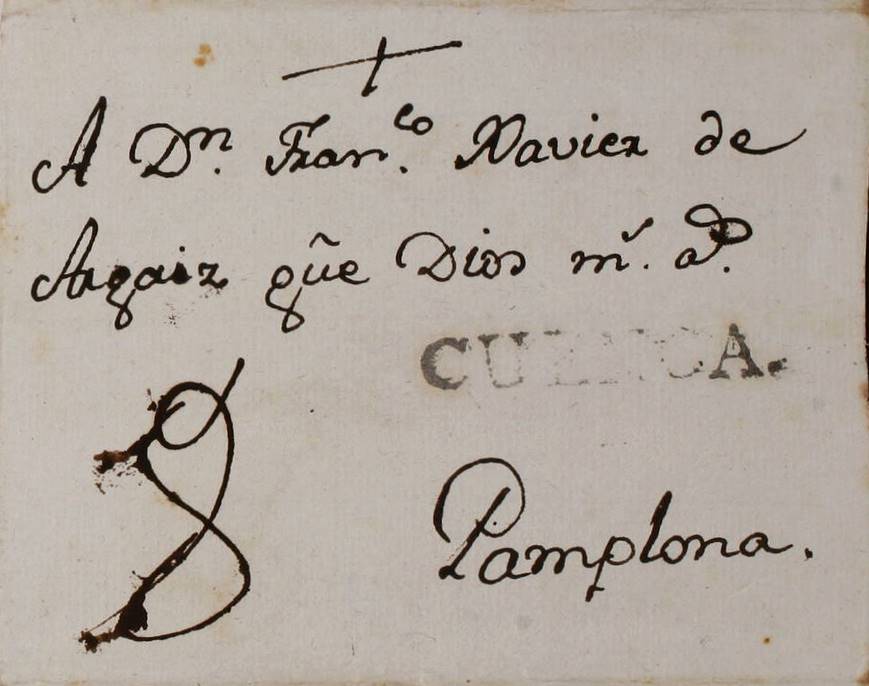 A Dn. Franco. Xavier de
Argaiz qũe Dios ms. as.
CUENCA.
8
Pamplona.